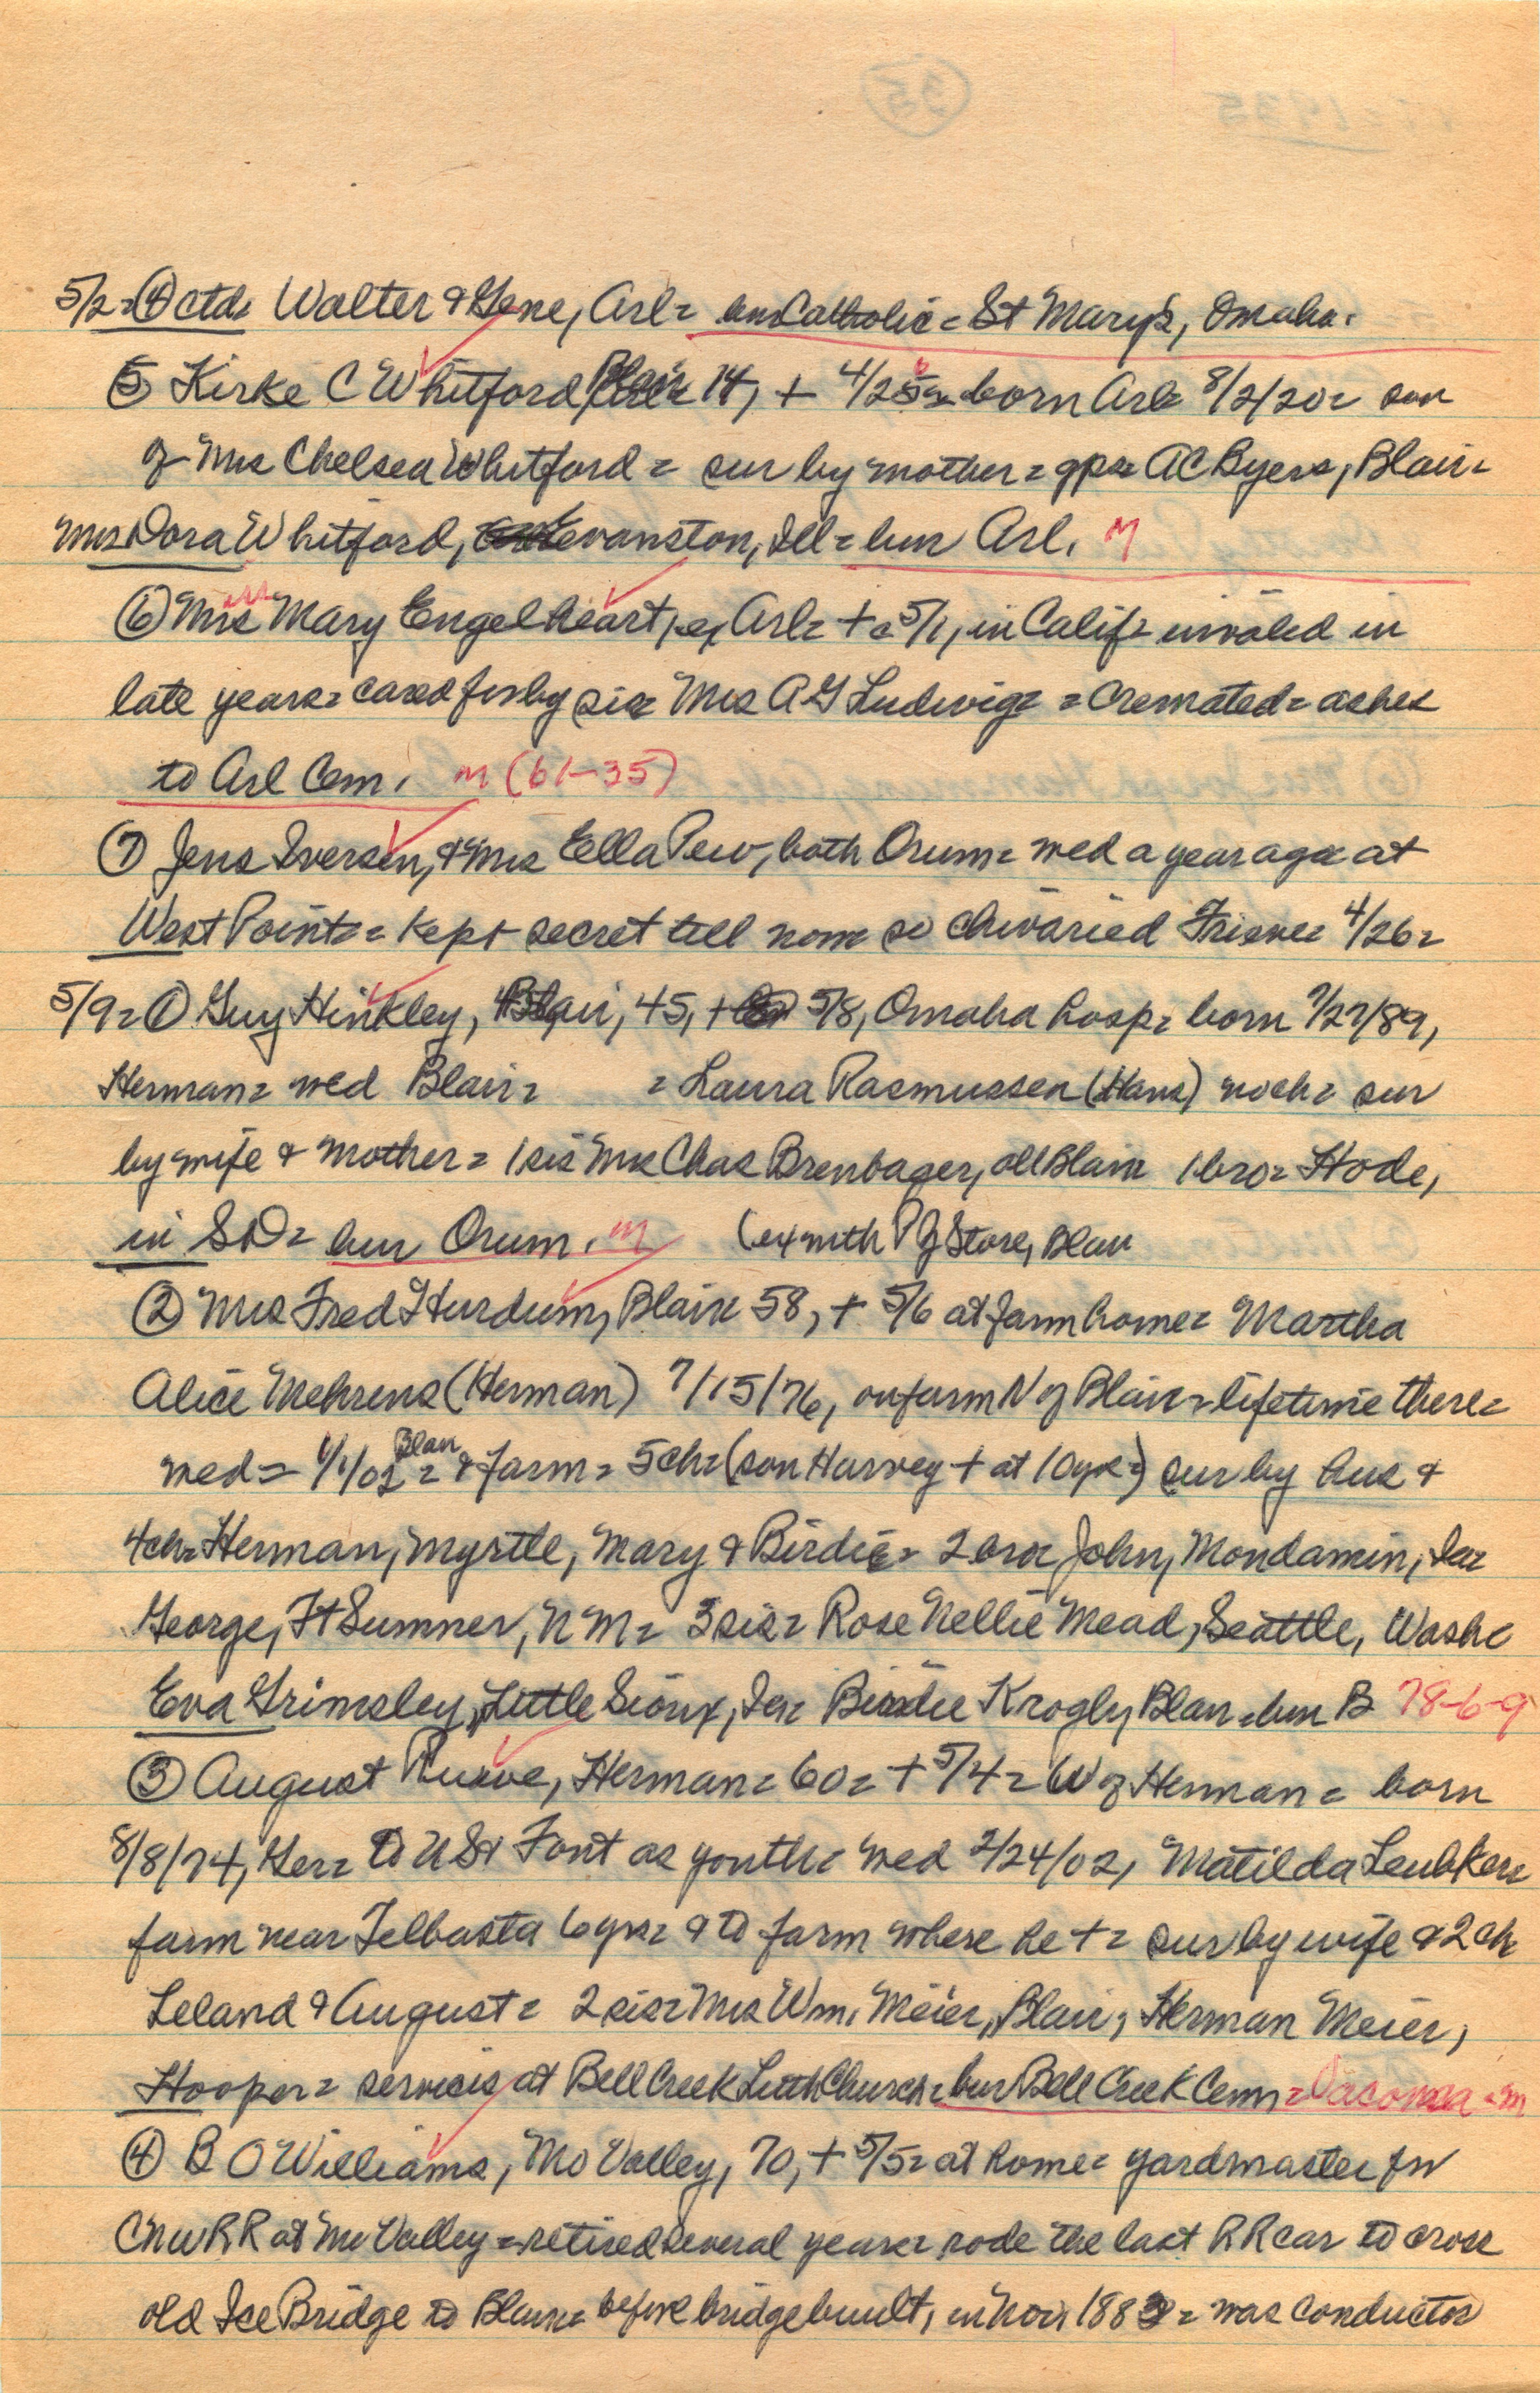 5/2 = ④ ctd= Walter & Gene, Arl = bur Catholic = St Mary's, Omaha.
⑤ Kirke C Whitford, Blair 14, + 4/25 = born Arl= 8/2/20 = son
of Mrs Chelsea Whitford = sur by mother = gps= AC Byers, Blair=
Mrs Dora Whitford, Evanston, Ill = bur Arl. M
⑥ Mrs Mary Engelheart, ex Arl = + c 5/1, in Calif = invalid in
late years = cared for by sis= Mrs A G Ludwig = cremated = ashes
to Arl Cem. M (61-35)
⑦ Jens Iversen, & Mrs Ella Pew, both Orum = wed a year ago at
West Point = kept secret till now so chivaried Fri eve= 4/26 =
5/9 = ① Guy Hinkley, Blair, 45, + 5/8, Omaha hosp = born 7/27/89,
Herman = wed Blair = = Laura Rasmussen (Hans) noch = sur
by wife & mother = 1 sis Mrs Chas Brenbager, all Blair 1 bro = Hode,
in SD = bur Orum. M (ex with Store, Blair
② Mrs Fred Hurdum, Blair 58, + 5/6 at farm home = Martha
Alice Mehrens (Herman) 7/15/76, on farm N of Blair = lifetime there =
wed = 1/1/02 = Blair & farm = 5 ch = (son Harvey + at 10 yrs =) sur by hus &
4 ch = Herman, Myrtle, Mary & Birdie = 2 bro= John, Mondamin, Ia=
George, Ft Sumner, NM = 3 sis = Rose Nellie Mead, Seattle, Wash=
Eva Grimsley, Little Sioux, Ia= Birdie Krogh, Blair = bur B 78-6-9
③ August , Herman = 60 = + 5/4 = W of Herman = born
8/8/74, Ger = to US & Font as youth = wed 2/24/02, Matilda Leubker=
farm near Telbasta 6 yrs = & to farm where he + = sur by wife & 2 ch
Leland & August = 2 sis = Mrs Wm. Meier, Blair; Herman Meier,
Hooper = services at Bell Creek Luth Church = bur Bell Creek Cem = Vacoma = M
④ B O Williams, Mo Valley, 70, + 5/5 = at home = yardmaster for
CNWRR at Mo Valley = retired several years = rode the last RR car to cross
old Ice Bridge to Blair = before bridge built, in Nov, 1883 = was conductor